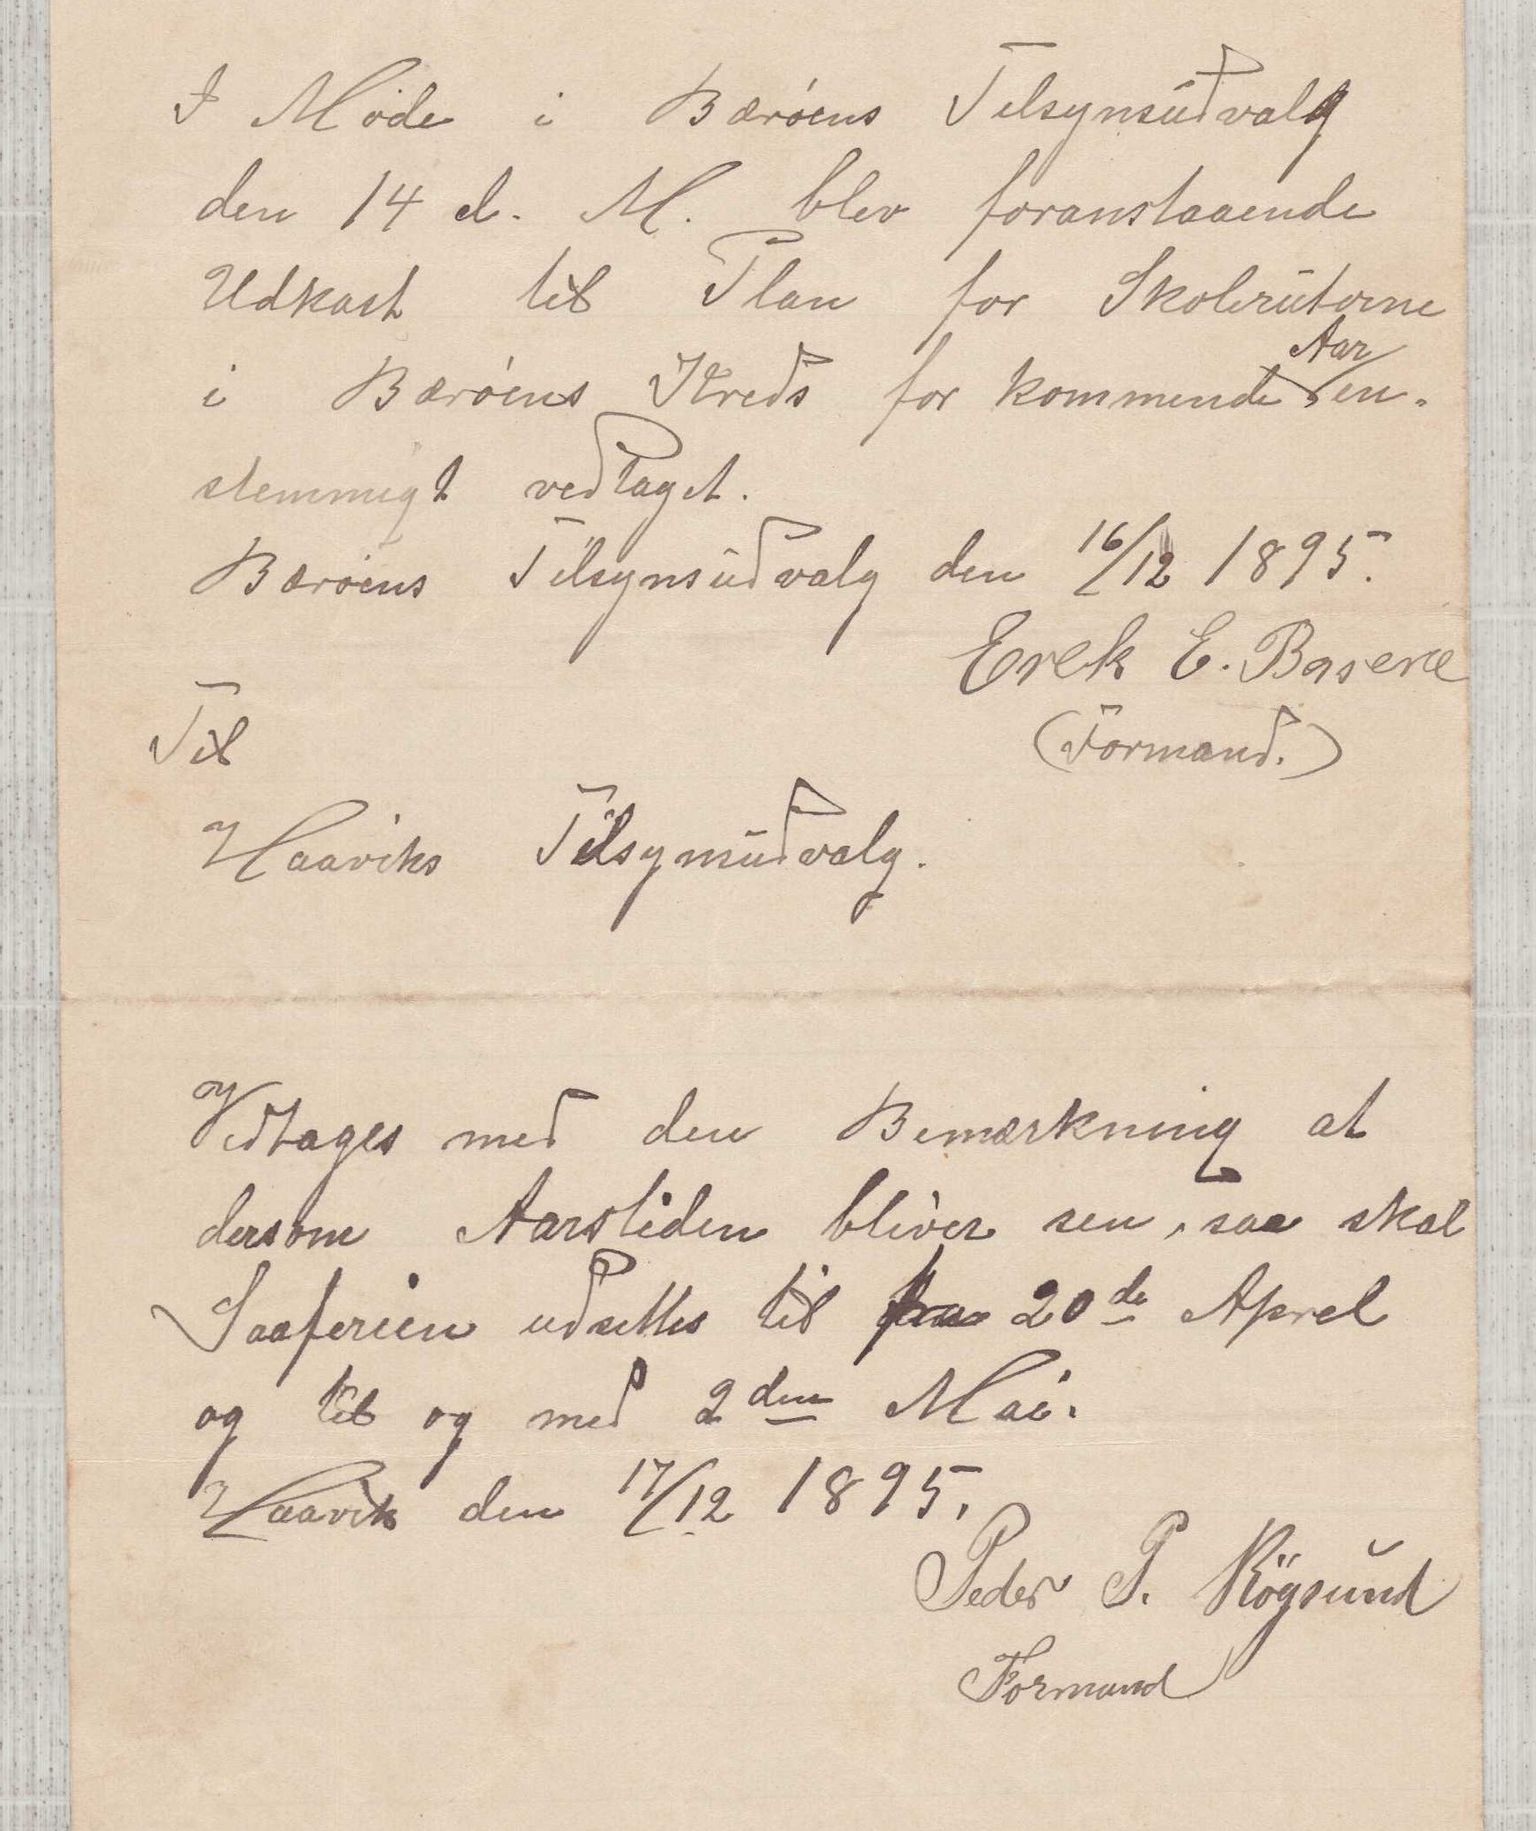 I Møde i Bærøens Tilsynsudvalg
den 14 d. M. blev foranstaaende
Udkast til Plan for Skoleruterne
i Bærøens Kreds for kommende Aar en-
stemmigt vedtaget.
Bærøens Tilsynsudvalg den 16/12 1895.
Erek E.
(Formand.)
Til
Haaviks Tilsynsudvalg.
Vedtages med den Bemærkning at
dersom Aarstiden bliver sen, saa skal
Saaferien udsettes til 20de April
og til og med 2den Mai.
Haavik den 17/12 1895.
Peder P. Røgsund
Formand